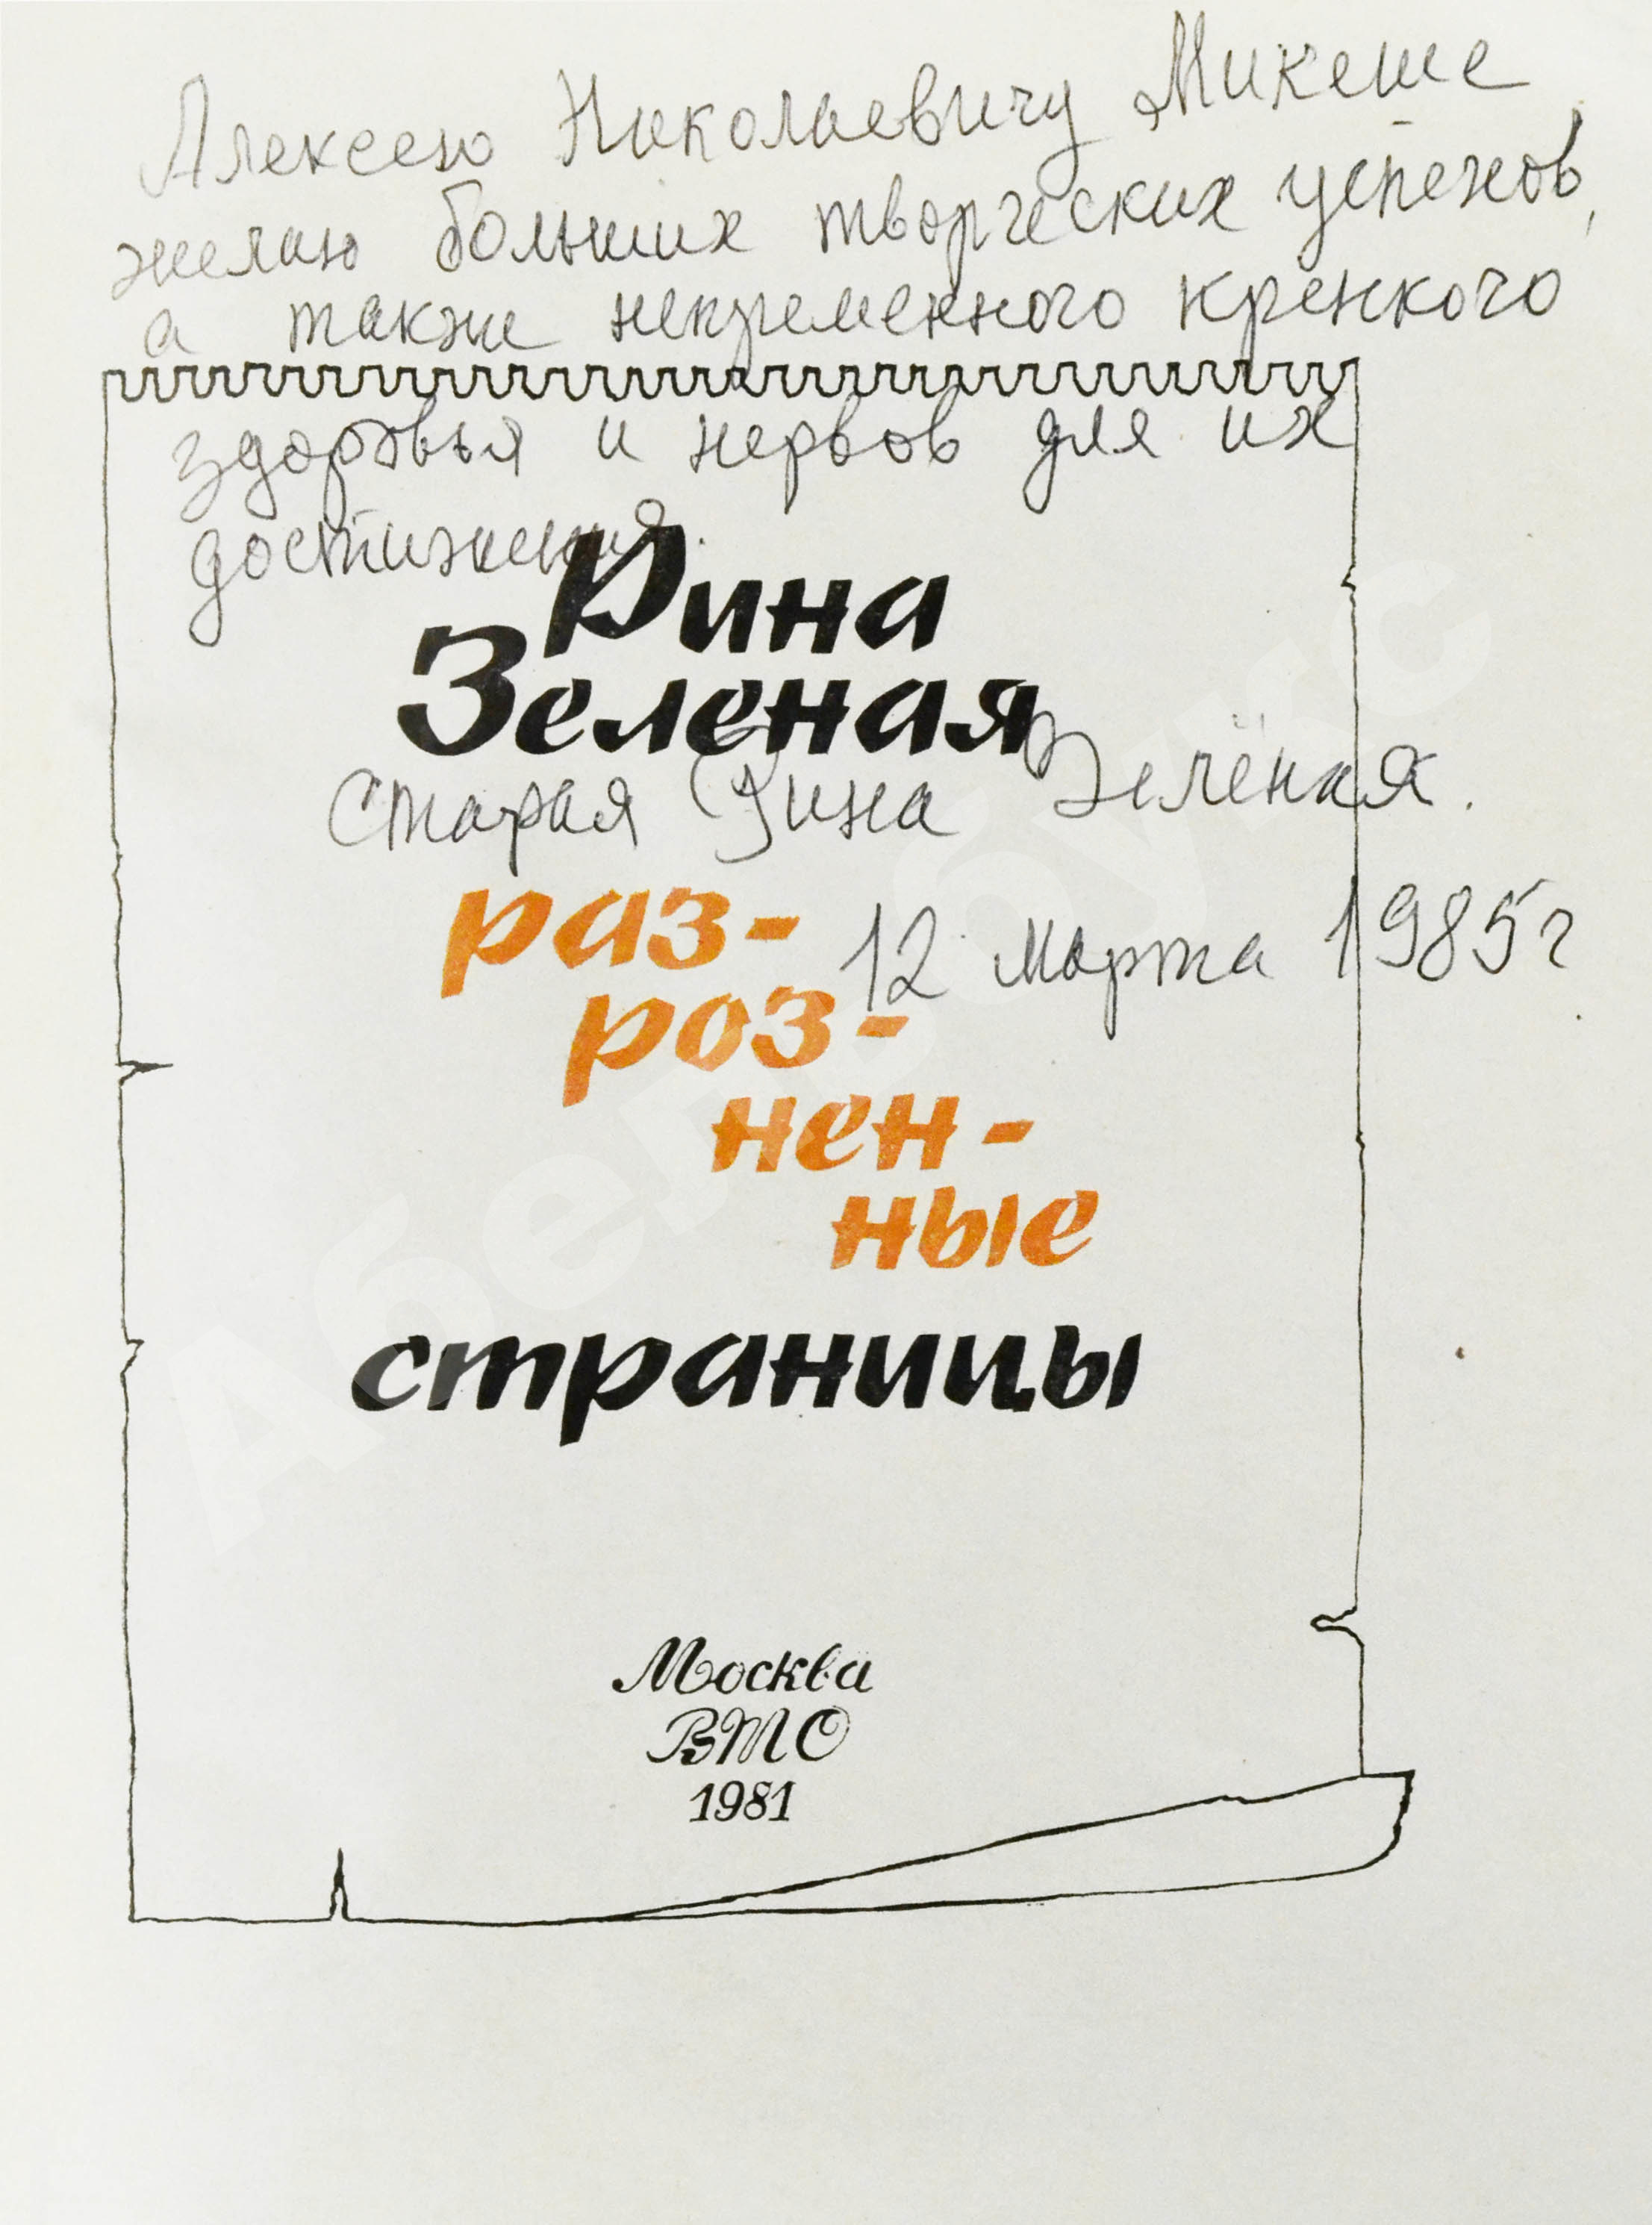 Алексею Николаевичу Микеше
желаю больших творческих успехов,
а также непременного крепкого
здоровья и нервов для их
достижения.
Рина
Зеленая
Старая Рина Зелёная.
раз-
12 марта 1985г
роз-
нен-
ные
страницы
Москва
ВТО
1981